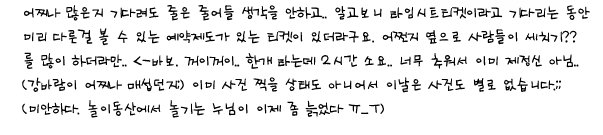 어찌나 많은지 기다려도 줄은 줄어들 생각을 안하고.. 알고보니 타임시트티켓이라고 기다리는 동안
미리 다른걸 볼 수 있는 예약제도가 있는 티켓이 있더라구요. 어쩐지 옆으로 사람들이 세치기??
를 많이 하더라만.. <-바보. 꺼이꺼이.. 한개 타는데 2시간 소요.. 너무 추워서 이미 제정신 아님..
(강바람이 어찌나 매섭던지) 이미 사진 찍을 상태도 아니어서 이날은 사진도 별로 없습니다;;
(미안하다. 놀이동산에서 놀기는 누님이 이제 좀 늙었다 ㅠ_ㅜ)